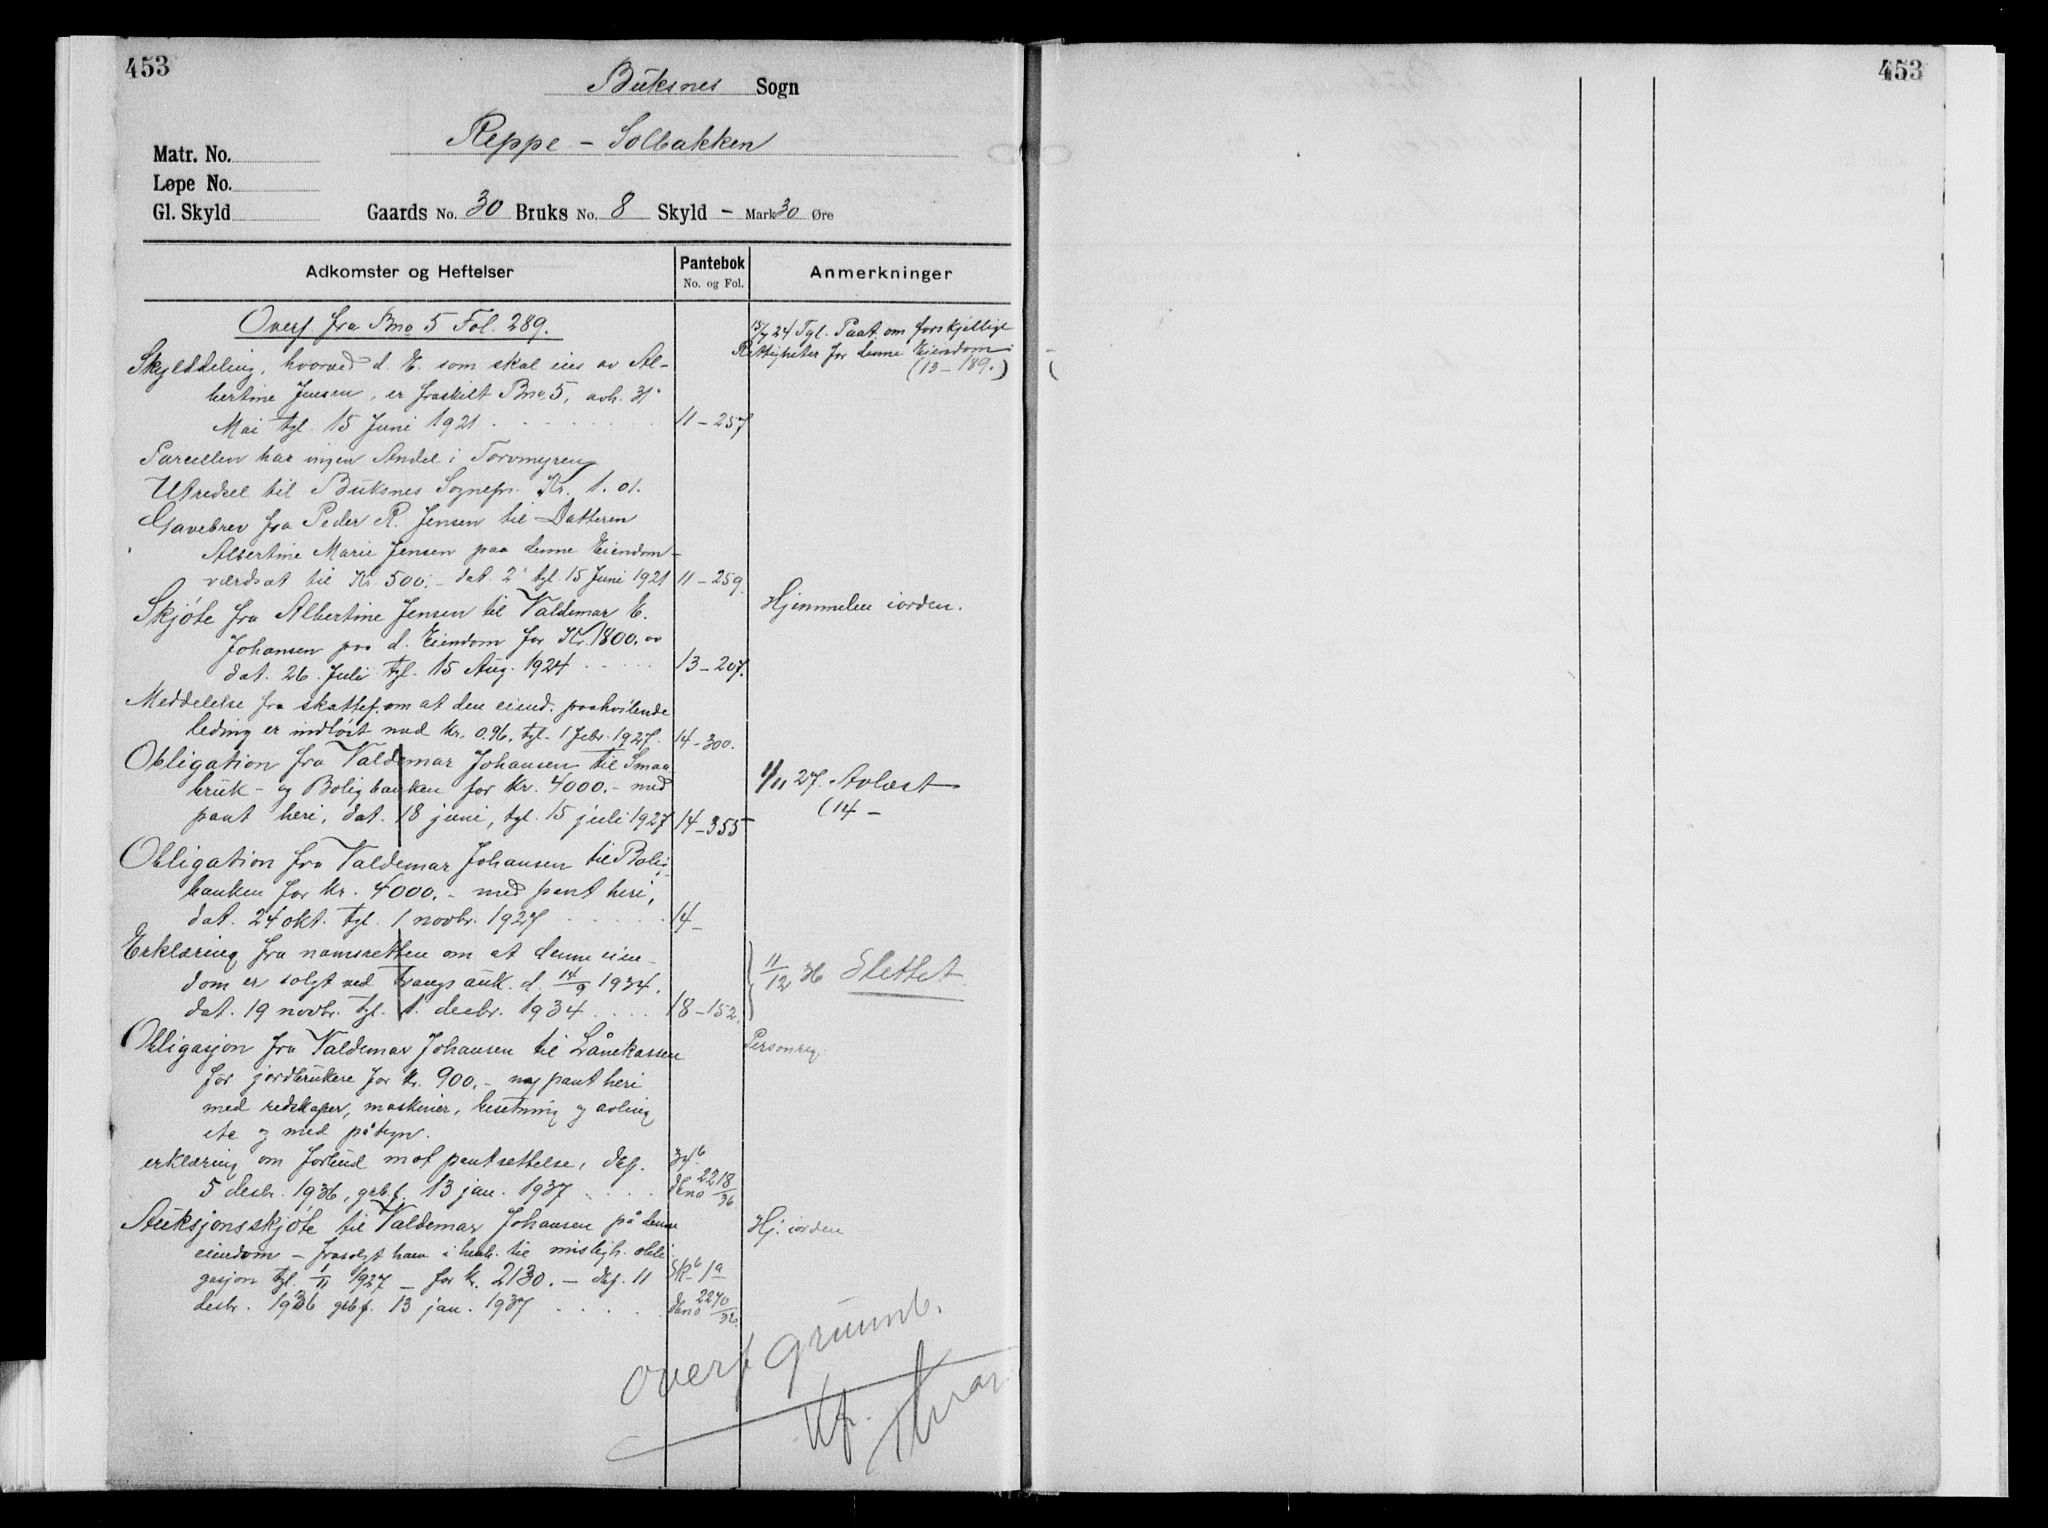 453
Buksnes Sogn
Reppe - Solbakken
Matr. No.
Løpe No.
Gl. Skyld Gaards No. 30 Bruks No. 8 Skyld - Mark 30 Øre
Adkomster og Heftelser Pantebok No. og Fol. Anmerkninger
Overf fra Bno 5 Fol. 289.
15/7 24 Tgl. Paat. om forskjellige
Rettigheter for denne Eiendom.
(13-189.)
Skylddeling, hvorved d. E. som skal eies av Al-
bertine Jensen, er fraskilt Bno. 5, avh. 31
Mai tgl. 15 Juni 1921 11-257
Parcellen har ingen Andel i Torvmyren
Utredsel til Buksnes Sognepr. Kr. 1.01.
Gavebrev fra Peder R. Jensen til Datteren
Albertine Marie Jensen paa denne Eiendom-
værdsat til Kr. 500.- dat. 2 tgl. 15 Juni 1921 11-259.
Skjøte fra Albertine Jensen til Valdemar E. Hjemmelen iorden.
Johansen paa d. Eiendom for Kr. 1800.00
dat. 26. Juli tgl. 15 Aug. 1924 13-207.
Meddelelse fra skattef. om at den eiend. paahvilende
leding er indløst med kr. 0.96. tgl. 1 febr. 1927. 14-300.
Obligation fra Valdemar Johansen til Smaa
bruk- og Boligbanken for kr. 4000.- med 1/11 27. Avlæst
pant heri, dat. 18 juni, tgl. 15 juli 1927 14-355 (14-
Obligation fra Valdemar Johansen til Bolig-
banken for kr. 4000.- med pant heri,
dat. 24 okt. tgl. 1 novbr. 1927 14-
Erklæring fra namsretten om at denne eien-
dom er solgt ved tvangsauk. d. 14/9 1934. 11/12 36 Slettet.
dat. 19 novbr. tgl. 1. decbr. 1934 18-152.
Obligasjon fra Valdemar Johansen til Lånekassen Personreg.
for jordbrukere for kr. 900.- m/ pant heri
med redskaper, maskiner, besetning og avling
etc og med påtegn.
erklæring om forbud mot pantsettelse, dag. 34b
5 desbr. 1936, grb.f. 13 jan. 1937 dkno 2218/36
Auksjonsskjøte til Valdemar Johansen på denne Hj. iorden
eiendom - frasolgt ham i henh. til misligh. obli-
gasjon tgl. 1/11 1927 - for kr. 2130.- dag. 11 Skb 1a
desbr. 1936 grbf. 13 jan. 1937 dkno 2270/36.
Overf grunnb.
453